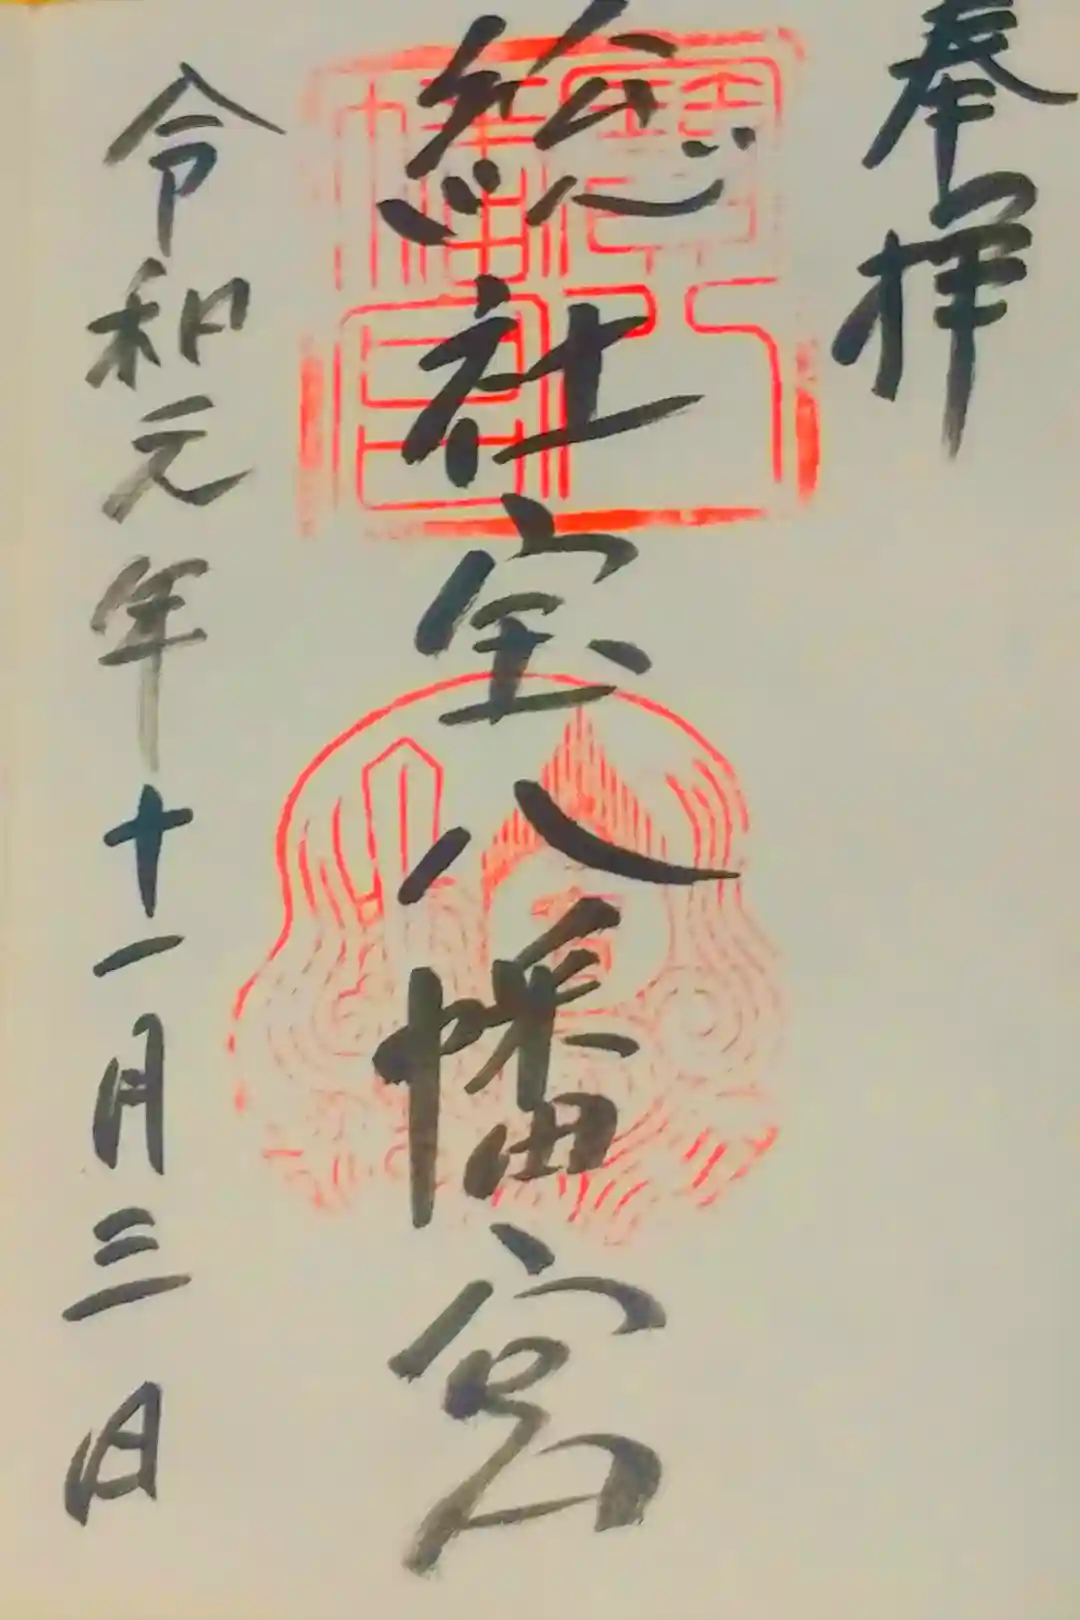 奉拝
総社宝八幡宮
寳八幡宮
令和元年十一月三日